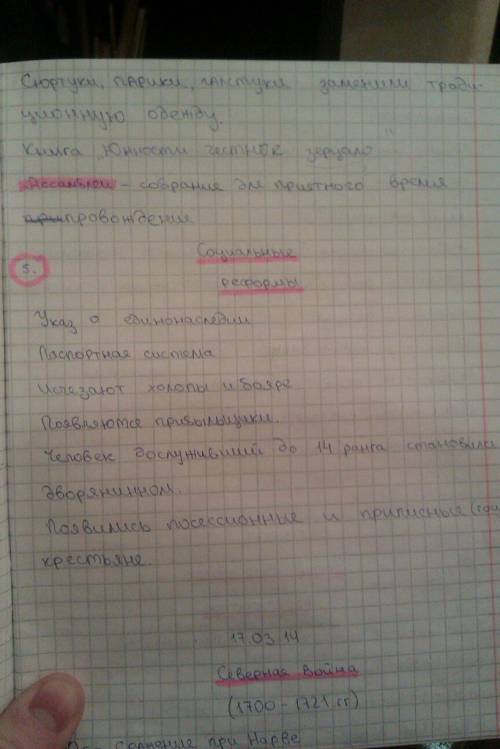 Сюртуки, парики, галстуки заменили тради-
ционную одежду.
Книга "Юности честное зерцало"
Ассамблеи - собрание для приятного время
препровождения
Социальные
5.
реформы
Указ о единонаследии
Паспортная система
Исчезают холопы и бояре
Появляются прибыльщики.
Человек дослуживший до 14 ранга становился
дворянинном.
Появились посессионные и приписные
крестьяне.
17.03.14
Северная война
(1700 - 1721 гг)
Сражение при Нарве